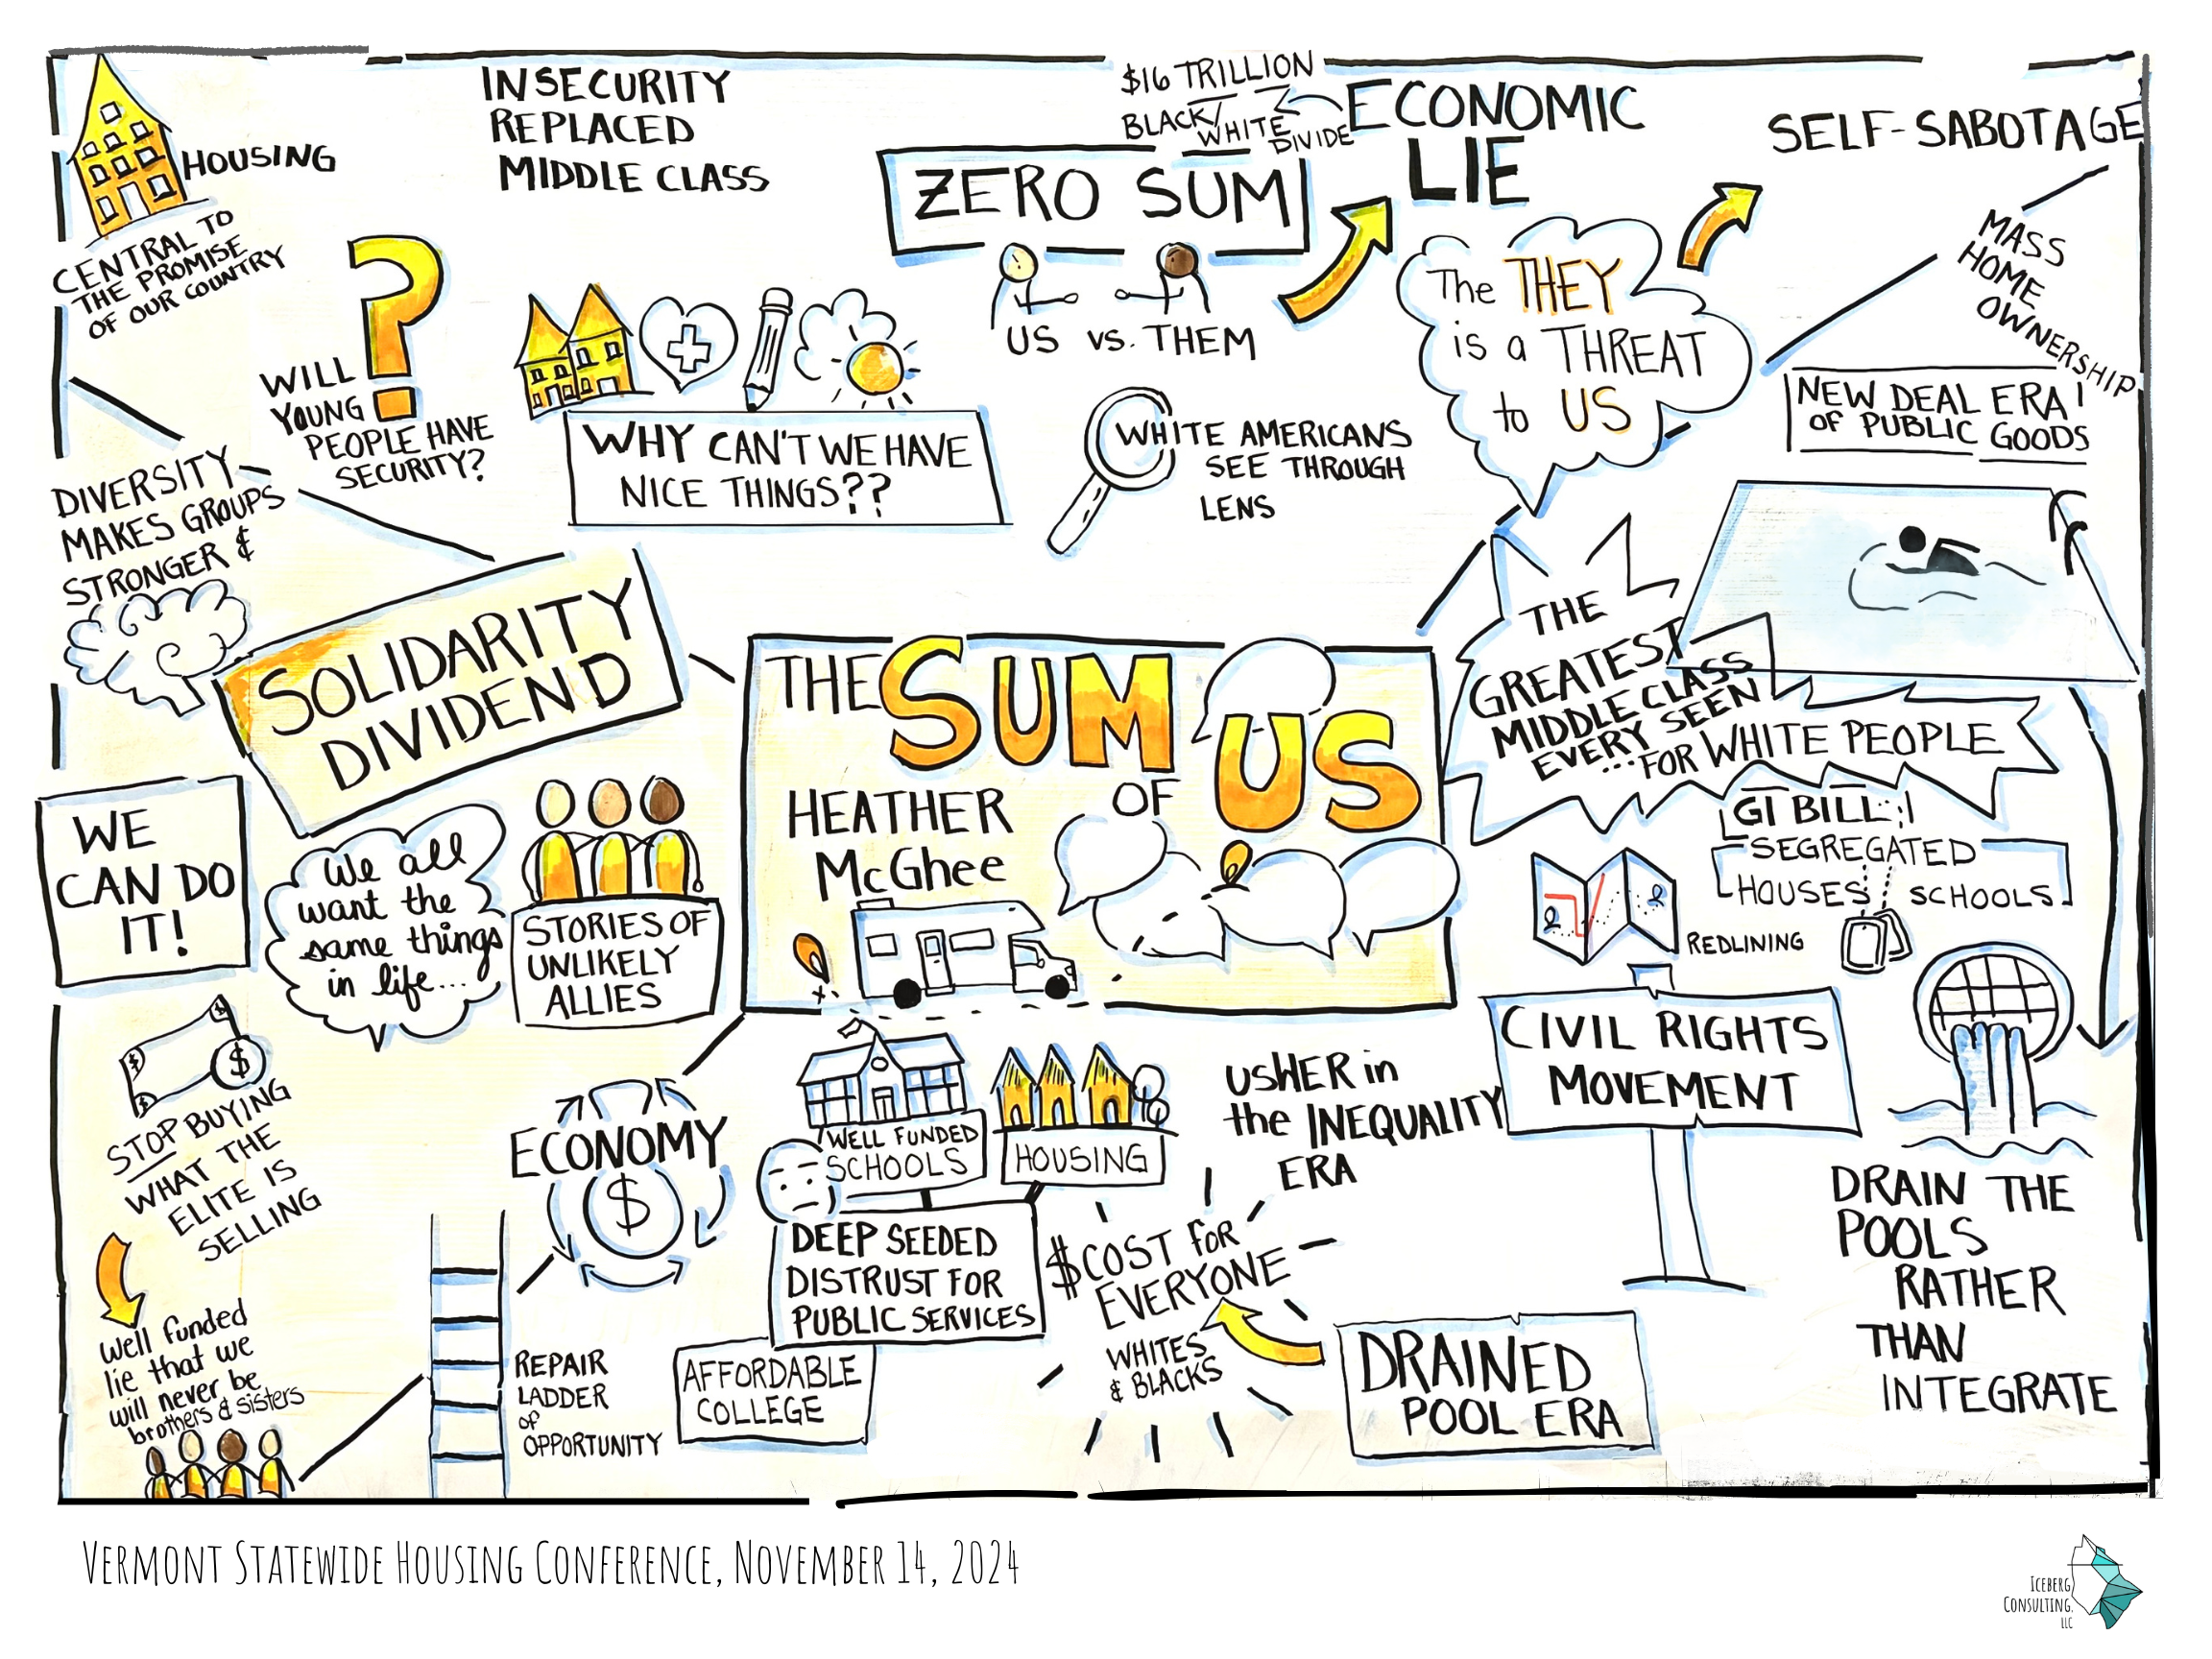 HOUSING
CENTRAL TO
THE PROMISE
OF OUR COUNTRY
INSECURITY
REPLACED
MIDDLE CLASS
WILL
YOUNG
PEOPLE HAVE
SECURITY?
WHY CAN'T WE HAVE
NICE THINGS??
$16 TRILLION
BLACK/
WHITE
DIVIDE
ZERO SUM
US vs. THEM
ECONOMIC
LIE
WHITE AMERICANS
SEE THROUGH
LENS
The THEY
is a THREAT
to US
SELF-SABOTAGE
MASS
HOME
OWNERSHIP
NEW DEAL ERA!
OF PUBLIC GOODS
THE
GREATEST
MIDDLE CLASS
EVERY SEEN
...FOR WHITE PEOPLE
GI BILL:
SEGREGATED
HOUSES SCHOOLS
REDLINING
DRAIN THE
POOLS
RATHER
THAN
INTEGRATE
CIVIL RIGHTS
MOVEMENT
USHER in
the INEQUALITY
ERA
DRAINED
POOL ERA
$COST FOR
EVERYONE
WHITES
& BLACKS
WELL FUNDED
SCHOOLS
HOUSING
DEEP SEEDED
DISTRUST FOR
PUBLIC SERVICES
AFFORDABLE
COLLEGE
ECONOMY
$
REPAIR
LADDER
OF
OPPORTUNITY
THE SUM
OF US
HEATHER
McGhee
DIVERSITY
MAKES GROUPS
STRONGER &
SOLIDARITY
DIVIDEND
WE
CAN DO
IT!
We all
want the
same things
in life...
STORIES OF
UNLIKELY
ALLIES
$
$
$
STOP BUYING
WHAT THE
ELITE IS
SELLING
Well funded
lie that we
will never be
brothers & sisters
VERMONT STATEWIDE HOUSING CONFERENCE, NOVEMBER 14, 2024
ICEBERG
CONSULTING,
LLC